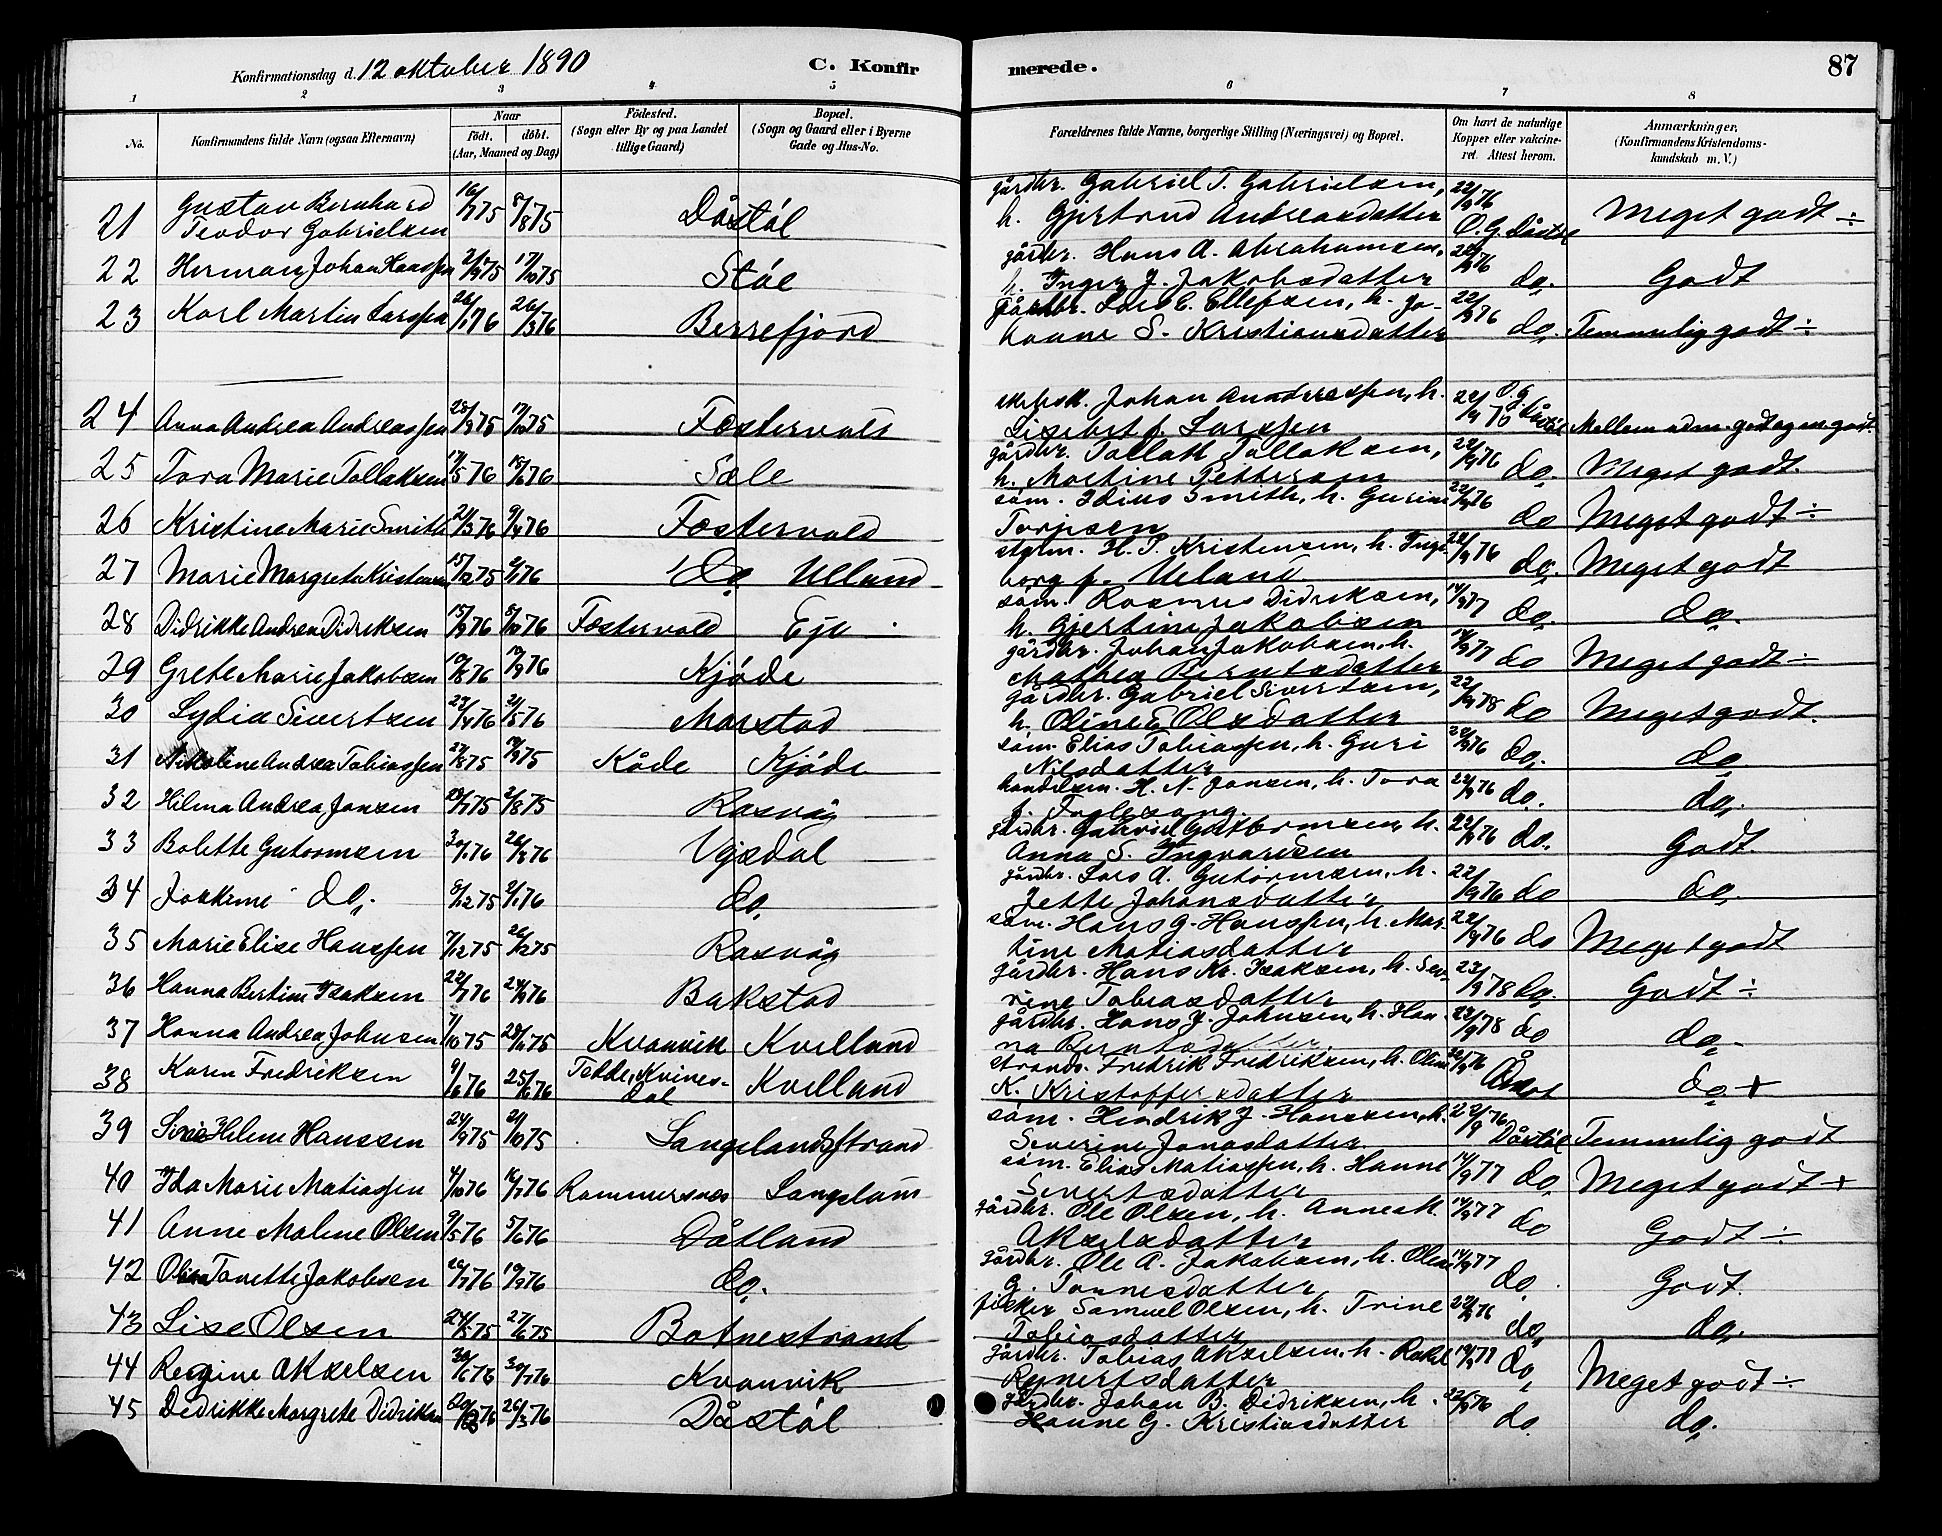 Konfirmationsdag d. 12 oktober 1890
C. Konfirmerede.
87
1 2 3 4 5 6 7 8
No.
Konfirmandens fulde Navn (ogsaa Efternavn)
Naar
Födt. döbt.
(Aar, Maaned og Dag)
Födested.
(Sogn eller By og paa Landet
tillige Gaard)
Bopæl.
(Sogn og Gaard eller i Byerne
Gade og Hus-No.
Forældrenes fulde Navne, borgerlige Stilling (Næringsvei) og Bopæl.
Om havt de naturlige
Kopper eller vakcine-
ret. Attest herom.
Anmærkninger.
(Konfirmandens Kristendoms-
kundskab m. V.)
21 Gustav Bernhard Teodor Gabrielsen 16/7 75 8/8 75 Dåstöl gårdbr. Gabriel T. Gabrielsen, h. Gjertrud Andreasdatter 22/9 76 O. G. Dåstöl Meget godt ÷
22 Herman Johan Hanssen 2/9 75 17/10 75 Stöl gårdbr. Hans A. Abrahamsen, h. Inger J. Jakobsdatter 22/9 76 do. Godt
23 Karl Martin Larssen 26/1 76 26/3 76 Berrefjord gårdbr. Lars C. Ellefsen, h. Johanne S. Kristiansdatter 22/9 76 do. Temmelig godt ÷
24 Anna Andrea Andreassen 28/9 75 17/10 75 Fostervold Johan Anndreassen, h. Lisebet f. Larssen 22/9 76 O. G. Dåstöl Mellem adm. godt og m. godt.
25 Tora Marie Tollaksen 17/5 76 18/6 76 Sæle gårdbr. Tollak Tollaksen, h. Martine Pettersen 22/9 76 do. Meget godt.
26 Kristine Marie Smith 21/3 76 9/4 76 Fostervold söm. Edius Smith, h. Gurine Torjusen 22/9 76 do Meget godt ÷
27 Marie Margrete Kristensen 15/12 75 9/1 76 do Ulland styrm. H. P. Kristensen, h. Ingeborg f. Ueland 22/9 76 do. Meget godt
28 Didrikke Andrea Didriksen 15/9 76 8/10 76 Fostervold Eje söm. Rasmus Didriksen, h. Gjertine Jakobsen 14/9 77 do. do.
29 Grete Marie Jakobsen 10/8 76 17/9 76 Kjöde gårdbr. Johan Jakobsen, h. Mathea Berntsdatter 14/9 77 do Meget godt ÷
30 Lydia Sivertsen 23/4 76 21/5 76 Marstad gårdbr. Gabriel Sivertsen, h. Oline E Olsdatter 22/9 78 do Meget godt.
31 Nikoline Andrea Tobiassen 27/8 75 19/9 75 Kåde Kjöde söm. Elias Tobiassen, h. Guri Nilsdatter 22/9 76 do. do
32 Hilma Andrea Jansen 2/8 75 Rasvåg handelsm. H. N. Jansen, h. Tora f. Fuglesang. 22/9 76 do. do.
33 Bolette Gutormsen 30/1 76 26/3 76 Ygsdal gårdbr. Gabriel Guttormsen, h. Anna S. Ingvartsen 22/9 76 do. Godt.
34 Joakime do. 8/12 75 2/1 76 do. gårdbr. Lars A. Gutormsen, h. Jette Johansdatter 22/9 76 do do.
35 Marie Elise Hanssen 7/12 75 26/12 75 Rasvåg söm. Hans G. Hanssen, h. Martine Matiasdatter 22/9 76 do Meget godt
36 Hanna Bertine Isaksen 22/7 76 24/9 76 Bakstad gårdbr. Hans Kr. Isaksen, h. Severine Tobiasdatter 23/9 78 do. Godt ÷
37 Hanna Andrea Johnsen 7/10 75 28/11 75 Kvanvik Kvelland gårdbr. Hans J. Johnsen, h. Hanna Berntsdatter 23/9 78 do do.
38 Karen Fredriksen 9/6 76 25/6 76 Fedde, Kvinesdal Kvelland strands. Fredrik Fredriksen, h. Oline K. Kristoffersdatter do +
39 Sine Helene Hanssen 24/9 75 21/10 75 Langelandsstrand söm. Hendrik J. Hanssen, h. Severine Jonasdatter 22/9 76 Dåstöl Temmelig godt
40 Ida Marie Matiassen 16/7 76 Rammersnes Langeland söm. Elias Matiassen, h. Hanne Sivertsdatter 14/9 77 do. Meget godt +
41 Anne Malene Olsen 9/5 76 5/6 76 Dåtland gårdbr. Ole Olsen, h. Anne M. Akselsdatter 14/9 77 do Godt ÷
42 Tonette Jakobsen 20/7 76 10/9 76 do. gårdbr. Ole A. Jakobsen, h. Oline G. Tonnesdatter 14/9 77 do. Godt.
43 Lise Olsen 24/5 75 27/6 75 Botnestrand fisker Samuel Olsen, h. Trine Tobiasdatter 22/9 76 do. do.
44 Regine Akselsen 30/6 76 30/7 76 Kvanvik gårdbr. Tobias Akselsen, h. Rakel Reinertsdatter 14/9 77 do. Meget godt ÷
45 Didrikke Margrete Didriksen 26/3 76 Dåstöl gårdbr. Johan B. Didriksen, h. Hanne G. Kristiansdatter 22/9 76 do do.